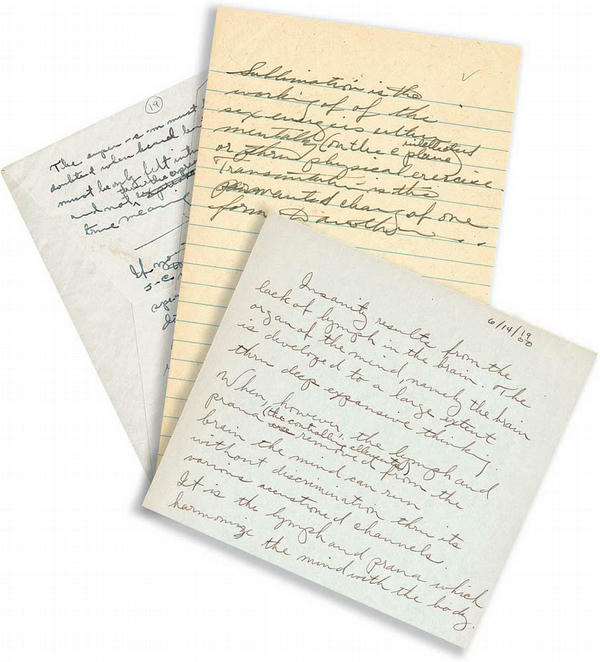 19
The super-c-m must b
doubted when heard be
must be only felt int
and not
true meaning
If you
Sublimation is the
working of of the
sex energies either
mentally (on the intellectual plane)
or thru physical exercise.
Transmutation is the
permanted change of one
form to another...
6/14/1900
Insanity results from the
lack of lymph in the brain. The
organ of the mind, namely the brain
is developed to a large extent
thru deep expansive thinking.
When, however the lymph and
prana (the controlling elements)
are removed from the
brain the mind can run
without discrimination thru its
various accustomed channels.
It is the lymph and prana which
harmonize the mind with the body.